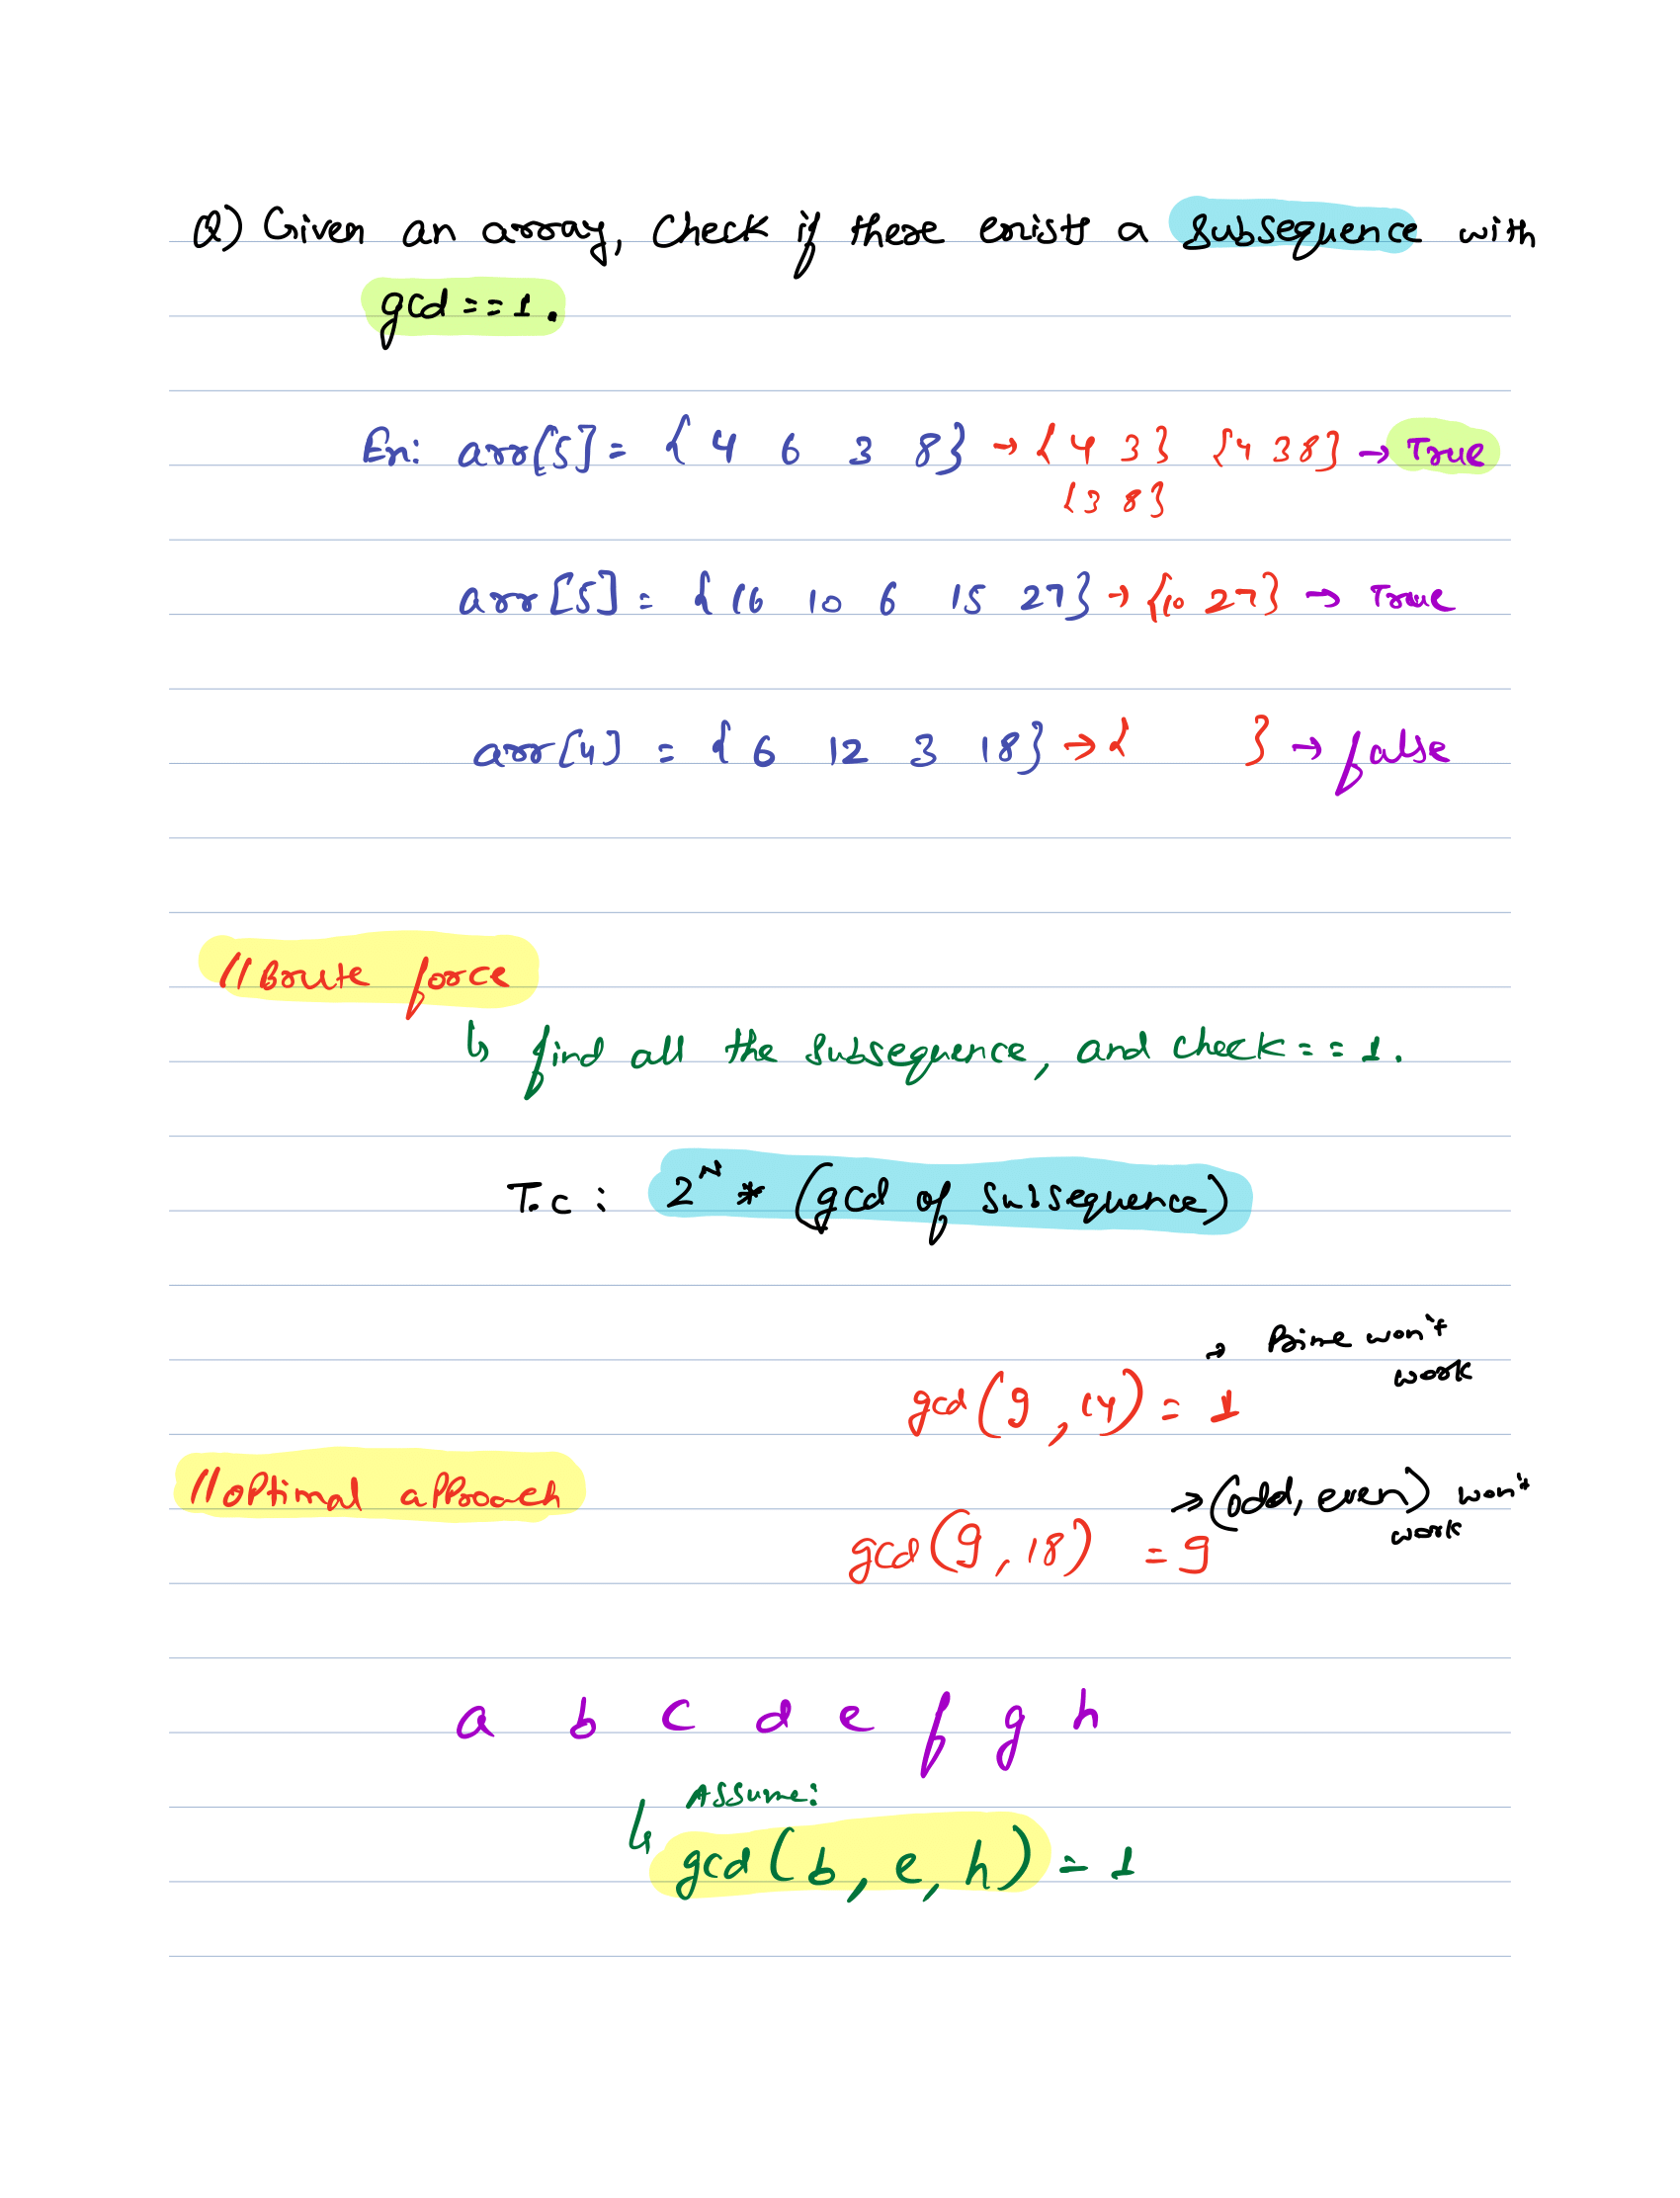 Q) Given an array, check if there exists a subsequence with
gcd == 1.
Ex: arr[5] = { 4 6 3 8} → { 4 3} {4 3 8} → True
{3 8}
arr[5] = { 16 10 6 15 27} → {10 27} → True
arr[4] = { 6 12 3 18} → { } → false
//Brute force
↳ find all the subsequence, and check == 1.
T.C : 2^N * (gcd of subsequence)
→ Prime won't
work
gcd(9, 14) = 1
//optimal approach
→ (odd, even) won't
work
gcd(9, 18) = 9
a b c d e f g h
↳ Assume:
gcd(b, e, h) = 1